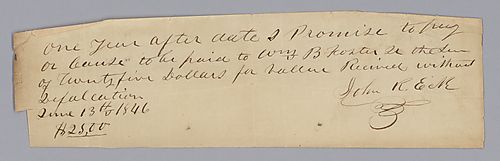 One Year after date I Promise to pay
or Cause to be paid to Wm B Foster Jr the Sum
of Twenty five Dollars for Vallue Recived without
Defalcation
June 13th 1846
$25,00
John K. Eck